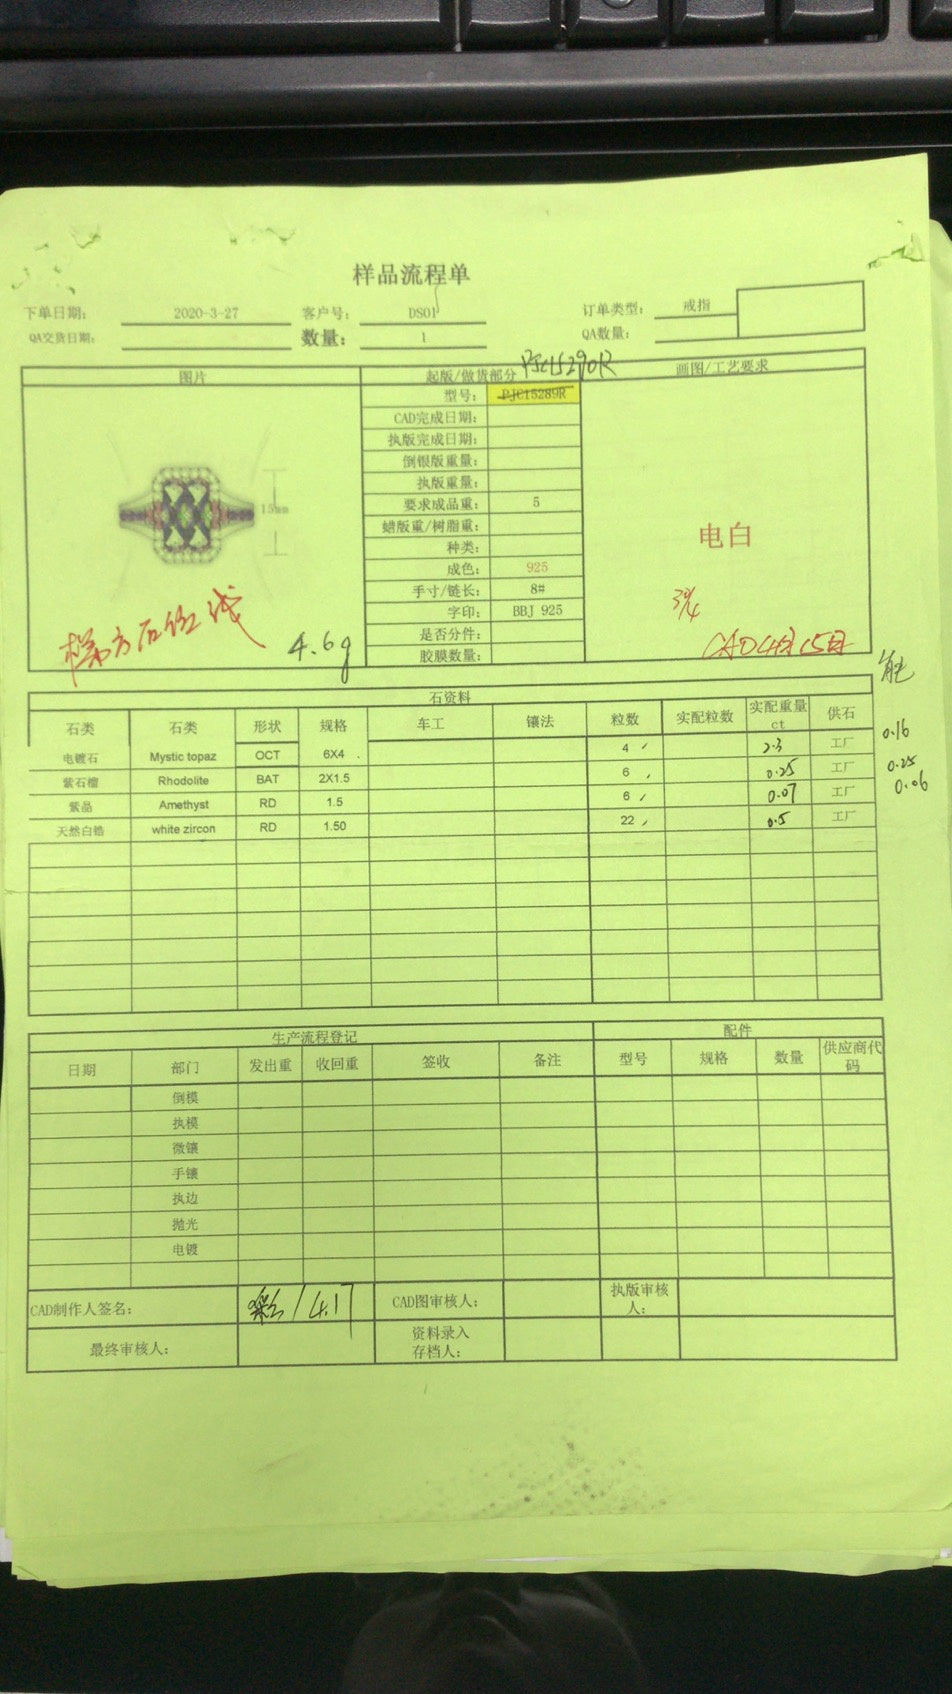 样品流程单
下单日期： 2020-3-27 客户号： DS01 订单类型： 戒指
QA交货日期： 数量： 1 QA数量：
PJC15290R
图片 起版/做货部分 画图/工艺要求
型号： PJC15289R
CAD完成日期：
执版完成日期：
倒银版重量：
执版重量：
15mm 要求成品重： 5
蜡版重/树脂重：
电白
种类：
成色： 925
手寸/链长： 8#
字印： BBJ 925
是否分件：
胶膜数量：
梯方石红线 4.6g
CAD 4月15日
石资料
石类 石类 形状 规格 车工 镶法 粒数 实配粒数 实配重量ct 供石
电镀石 Mystic topaz OCT 6X4 4 2.3 工厂 0.16
紫石榴 Rhodolite BAT 2X1.5 6 0.25 工厂 0.25
紫晶 Amethyst RD 1.5 6 0.07 工厂 0.06
天然白锆 white zircon RD 1.50 22 0.5 工厂
生产流程登记 配件
日期 部门 发出重 收回重 签收 备注 型号 规格 数量 供应商代码
倒模
执模
微镶
手镶
执边
抛光
电镀
CAD制作人签名： 4.17 CAD图审核人： 执版审核人：
最终审核人： 资料录入存档人：